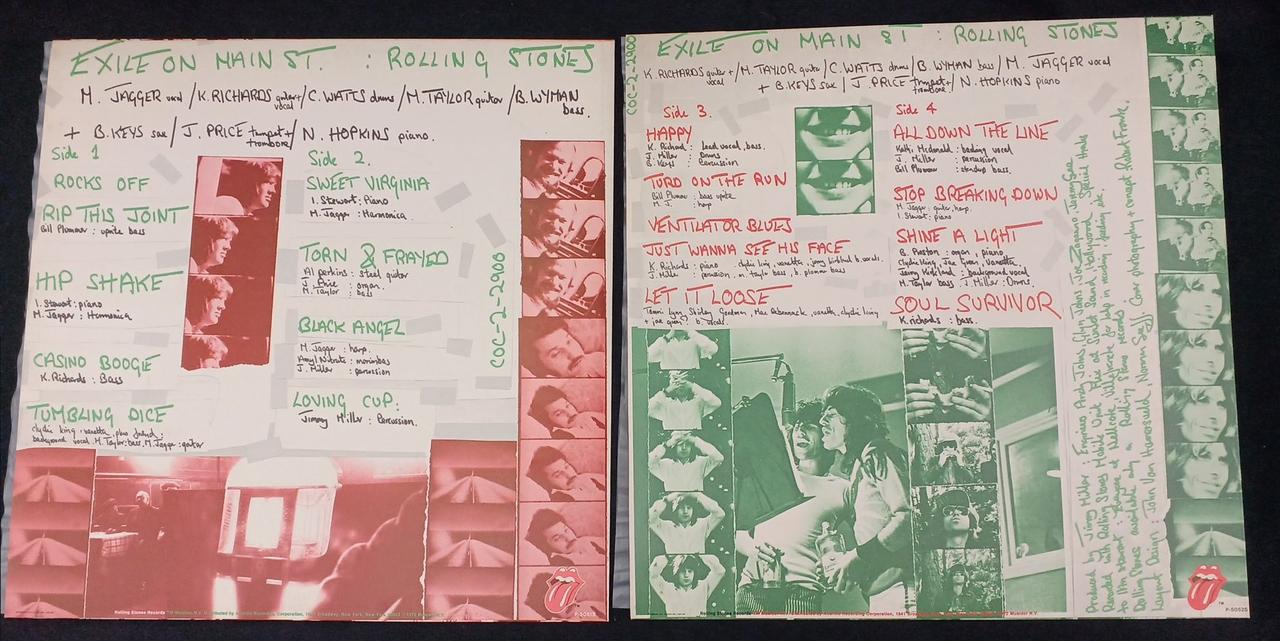 EXILE ON MAIN ST. : ROLLING STONES
M. JAGGER vocal / K. RICHARDS guitar + vocal / C. WATTS drums / M. TAYLOR guitar / B. WYMAN bass.
+ B. KEYS sax / J. PRICE trumpet + trombone / N. HOPKINS piano.
Side 1
ROCKS OFF
RIP THIS JOINT
Bill Plummer : uprite bass
HIP SHAKE
I. Stewart : piano
M. Jagger : Harmonica
CASINO BOOGIE
K. Richards : Bass
TUMBLING DICE
clydie king, vanetta, plus friend :
background vocal. M. Taylor: bass, M. Jagger : guitar
Side 2.
SWEET VIRGINIA
I. Stewart: Piano
M. Jagger : Harmonica
TORN & FRAYED
Al perkins : steel guitar
J. Price : organ.
M. Taylor : bass
BLACK ANGEL
M. Jagger : harp.
Amyl Nitrate : marimbas
J. Miller : percussion
LOVING CUP:
Jimmy Miller : Percussion.
COC-2-2900
Rolling Stones Records
P-5062S
COC-2-2900
EXILE ON MAIN ST : ROLLING STONES
K. RICHARDS guitar + vocal / M. TAYLOR guitar / C. WATTS drums / B. WYMAN bass / M. JAGGER vocal
+ B. KEYS sax / J. PRICE trumpet + trombone / N. HOPKINS piano
Side 3.
HAPPY
K. Richard : lead vocal, bass.
J. Miller : Drums.
B. Keys : percussion
TURD ON THE RUN
Bill Plummer : bass uprite
M. J. : harp
VENTILATOR BLUES
JUST WANNA SEE HIS FACE
K. Richards : piano clydie king, vanetta, jerry kirkland b. vocals.
J. Miller : percussion, m. taylor bass, b. plummer bass
LET IT LOOSE
Tammi Lynn, Shirley Goodman, Mac Rebennack, vanetta, clydie king
+ joe green : b. vocals
Side 4
ALL DOWN THE LINE
Kathi Mcdonald : backing vocal
J. Miller : percussion
Bill Plummer : standup bass.
STOP BREAKING DOWN
M. Jagger : guitar, harp.
I. Stewart : piano
SHINE A LIGHT
B. Preston : organ, piano
clydie king, Joe Green, Vanetta
Jerry Kirkland : background vocal
M. Taylor bass, J. Miller : Drums.
SOUL SURVIVOR
K. richards : bass.
Produced by Jimmy Miller : Engineers Andy Johns, Glyn Johns, Joe Zaganno, Jeremy Gee
Recorded with Rolling Stones Mobile Unit + Mixed at Sunset Sound, Hollywood. Special thanks
Layout Design : John Van Hamersveld, Norman Seeff. Cover photography + concept Robert Frank.
Rolling Stones Records
P-5062S